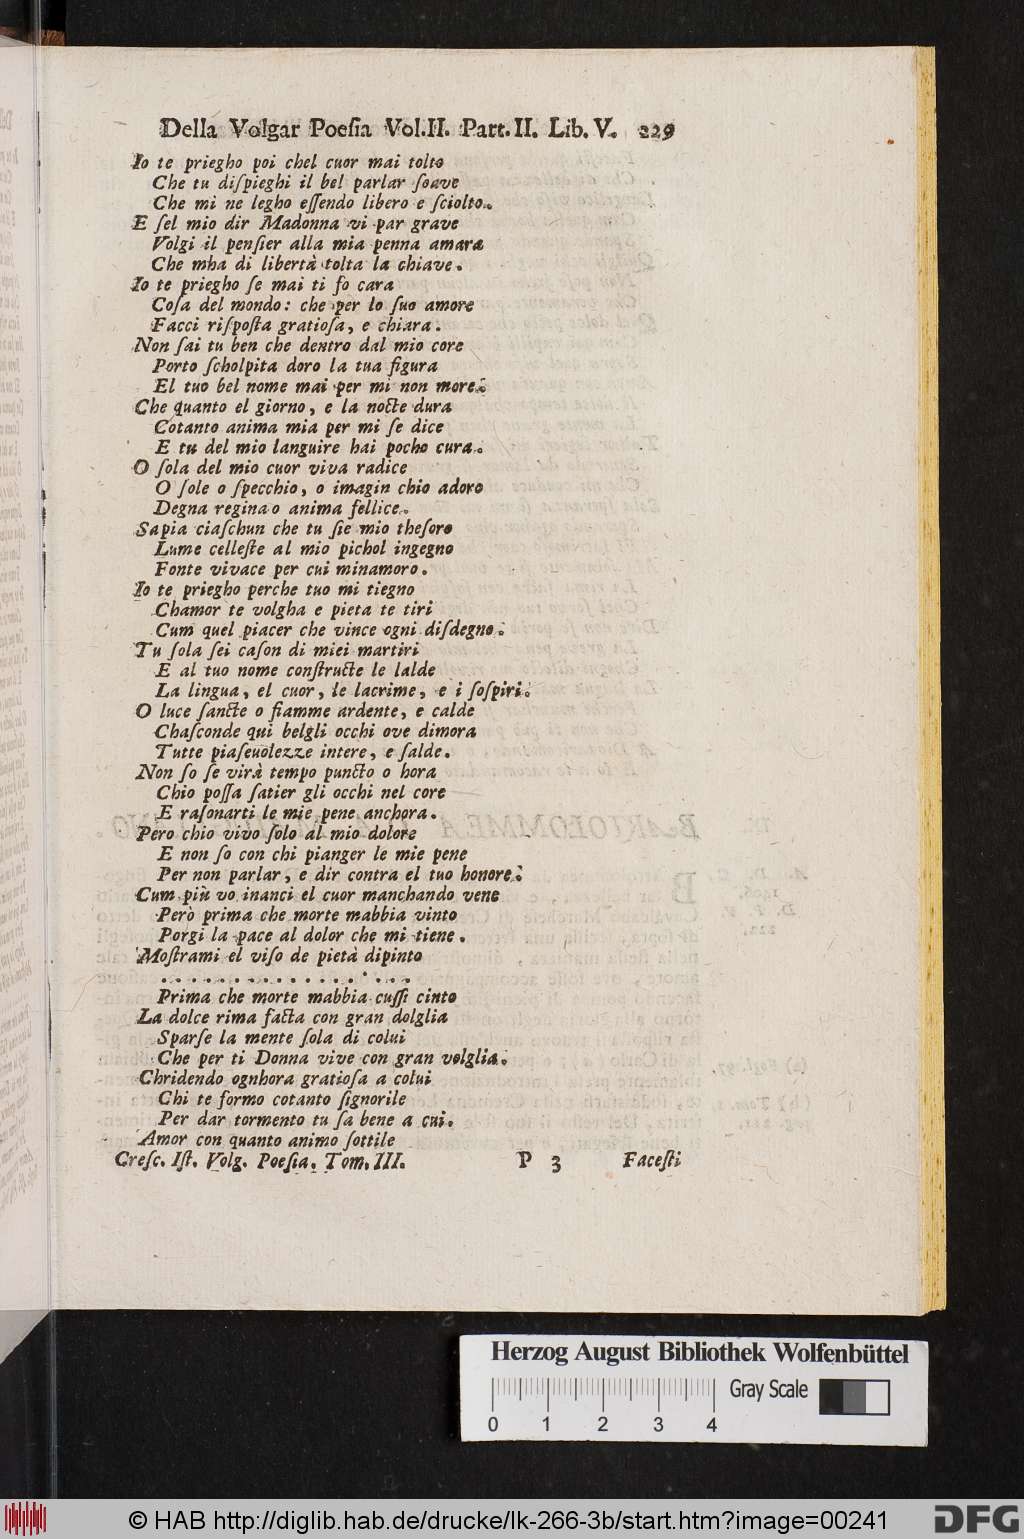 Della Volgar Poeſia Vol.II. Part.II. Lib.V. 229
Io te priegho poi chel cuor mai tolto
Che tu diſpieghi il bel parlar ſoave
Che mi ne legho eſſendo libero e ſciolto.
E ſel mio dir Madonna vi par grave
Volgi il penſier alla mia penna amara
Che mha di libertà tolta la chiave.
Io te priegho ſe mai ti fo cara
Coſa del mondo: che per lo ſuo amore
Facci riſpoſta gratioſa, e chiara.
Non ſai tu ben che dentro dal mio core
Porto ſcholpita doro la tua figura
El tuo bel nome mai per mi non more.
Che quanto el giorno, e la nocte dura
Cotanto anima mia per mi ſe dice
E tu del mio languire hai pocho cura.
O ſola del mio cuor viva radice
O ſole o ſpecchio, o imagin chio adoro
Degna regina o anima fellice.
Sapia ciaſchun che tu ſie mio theſoro
Lume celleſte al mio pichol ingegno
Fonte vivace per cui minamoro.
Io te priegho perche tuo mi tiegno
Chamor te volgha e pieta te tiri
Cum quel piacer che vince ogni diſdegno.
Tu ſola ſei caſon di miei martiri
E al tuo nome conſtructe le lalde
La lingua, el cuor, le lacrime, e i ſoſpiri.
O luce ſancte o fiamme ardente, e calde
Chaſconde qui belgli occhi ove dimora
Tutte piaſeuolezze intere, e ſalde.
Non ſo ſe virà tempo puncto o hora
Chio poſſa ſatier gli occhi nel core
E raſonarti le mie pene anchora.
Pero chio vivo ſolo al mio dolore
E non ſo con chi pianger le mie pene
Per non parlar, e dir contra el tuo honore.
Cum più vo inanci el cuor manchando vene
Però prima che morte mabbia vinto
Porgi la pace al dolor che mi tiene.
Moſtrami el viſo de pietà dipinto
. . . . . . . . . . . . . . . . . .
Prima che morte mabbia cuſſi cinto
La dolce rima facta con gran dolglia
Sparſe la mente ſola di colui
Che per ti Donna vive con gran volglia.
Chridendo ognhora gratioſa a colui
Chi te formo cotanto ſignorile
Per dar tormento tu ſa bene a cui.
Amor con quanto animo ſottile
Creſc. Iſt. Volg. Poeſia. Tom. III. P 3 Faceſti
Herzog August Bibliothek Wolfenbüttel
Gray Scale
0 1 2 3 4
© HAB http://diglib.hab.de/drucke/lk-266-3b/start.htm?image=00241
DFG